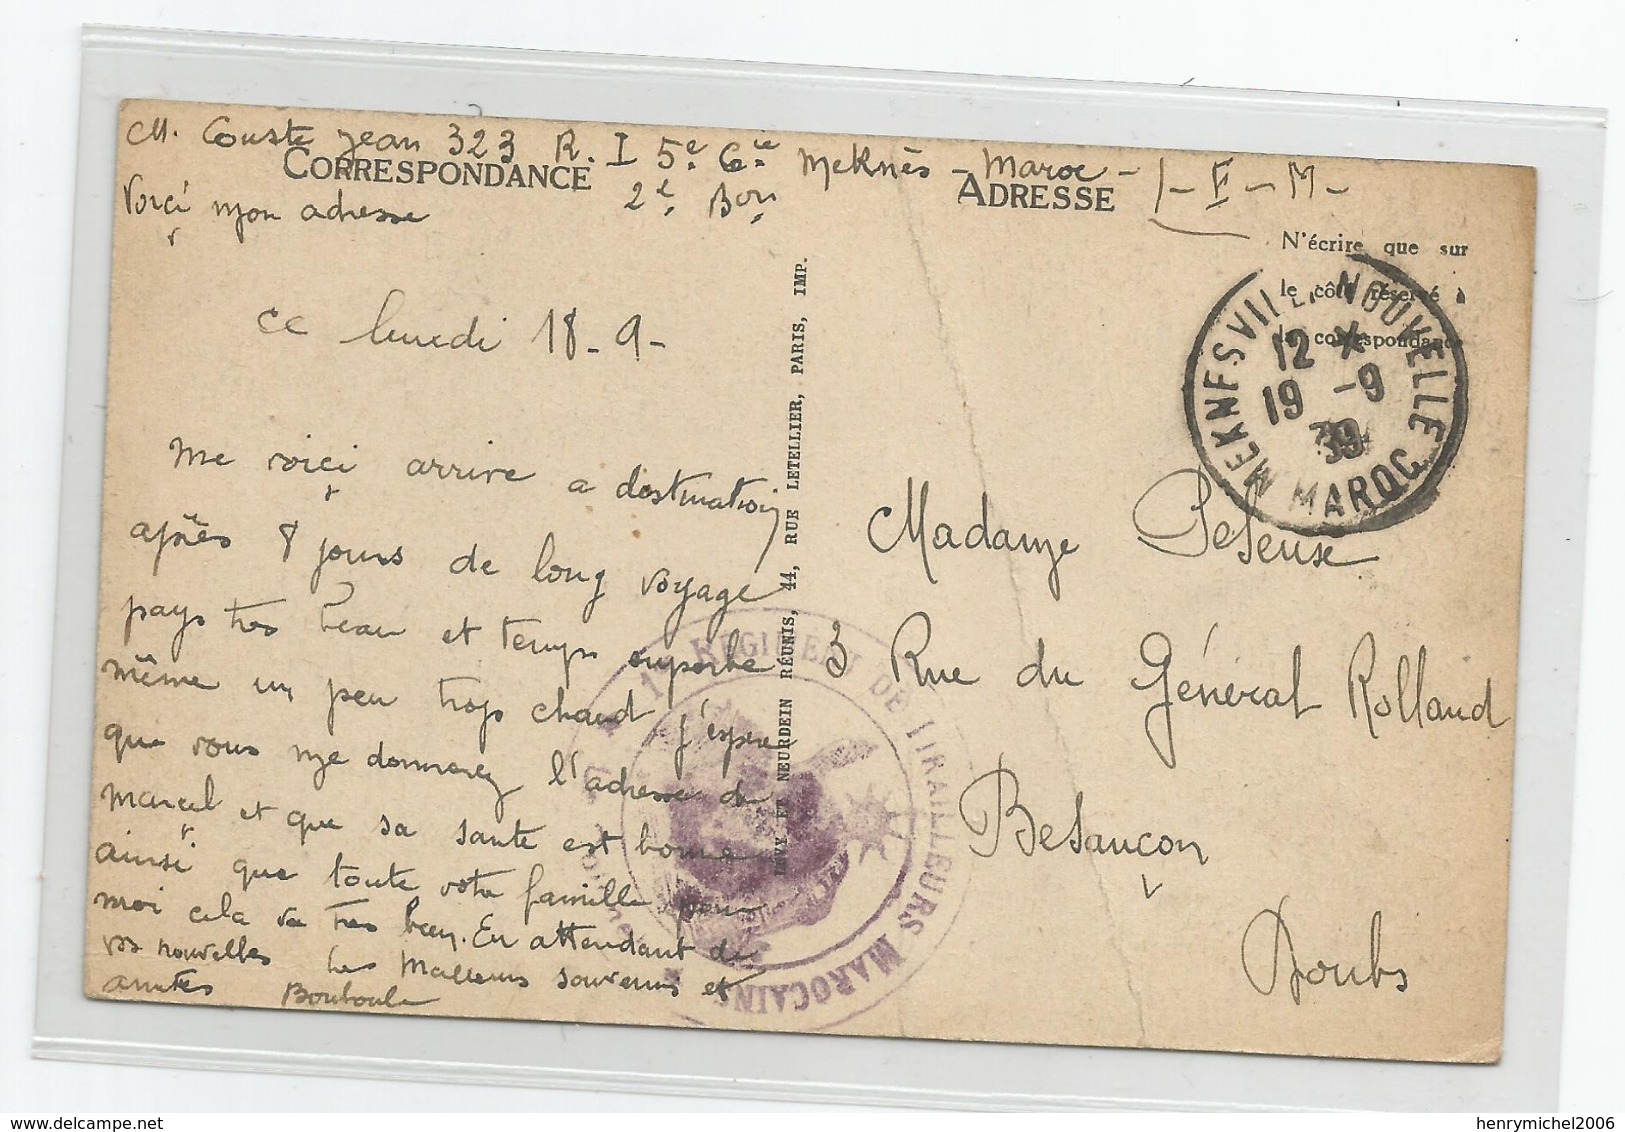 M. Couste Jean 323 R. I 5e Cie Meknès - Maroc -
2e Bon
F - M -
CORRESPONDANCE
ADRESSE
Voici mon adresse
N'écrire que sur
le côté réservé à
la correspondance
ce lundi 18 - 9 -
me voici arrivé a destination
après 8 jours de long voyage
pays tres beau et temps superbe
même un peu trop chaud j'espere
que vous me donnerez l'adresse de
Marcel et que sa santé est bonne
ainsi que toute votre famille pour
moi cela va tres bien. En attendant de
vos nouvelles Les Meilleurs souvenirs et
amitiés Bouboule
LEVY ET NEURDEIN RÉUNIS, 44, RUE LETELLIER, PARIS, IMP.
MEKNES VILLE NOUVELLE
12 X
19 -9
39
MAROC
Madame
3 Rue du Général Rolland
Besançon
Doubs
RÉGIMENT DE TIRAILLEURS MAROCAINS
henrymichel2006